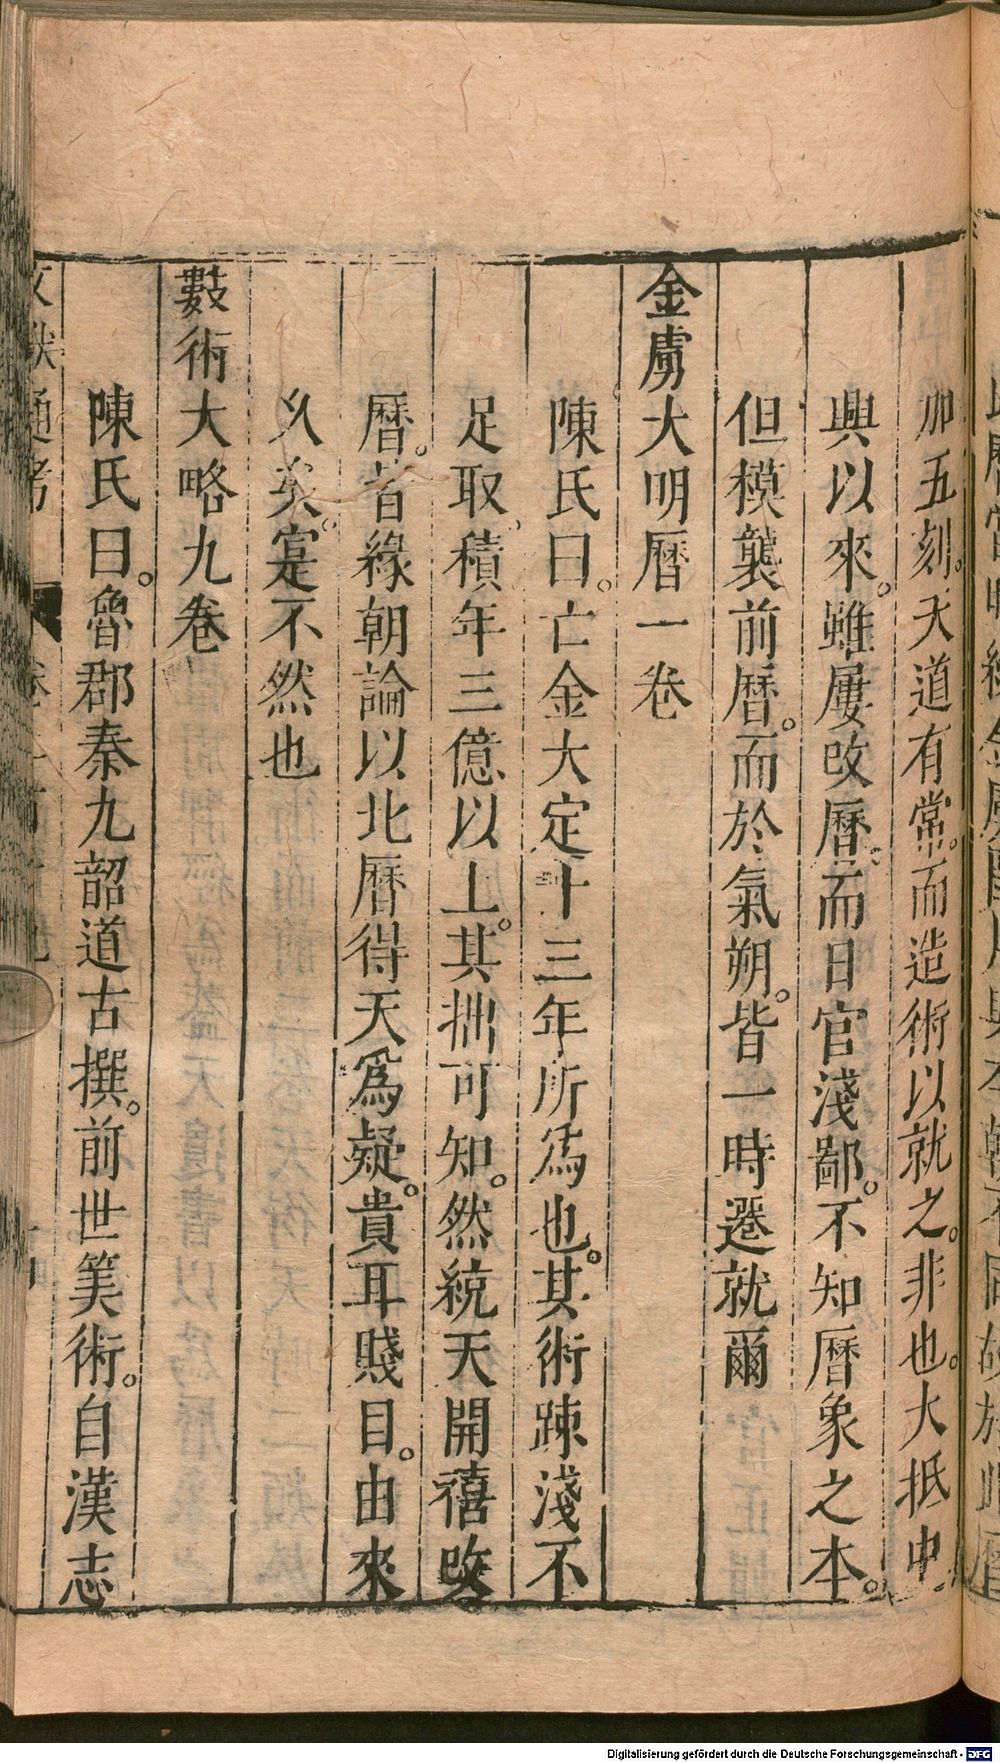 加五刻。天道有常。而造術以就之。非也。大抵中
興以來。雖屢改曆。而日官淺鄙。不知曆象之本。
但模襲前曆。而於氣朔。皆一時遷就爾
金虜大明曆一卷
陳氏曰。亡金大定十三年所為也。其術疎淺不
足取。積年三億以上。其拙可知。然統天開禧改
曆。皆緣朝論以北曆得天爲疑。貴耳賤目。由來
乆矣。寔不然也
數術大略九卷
陳氏曰。魯郡秦九韶道古撰。前世筭術。自漢志
文獻通考
Digitalisierung gefördert durch die Deutsche Forschungsgemeinschaft - DFG